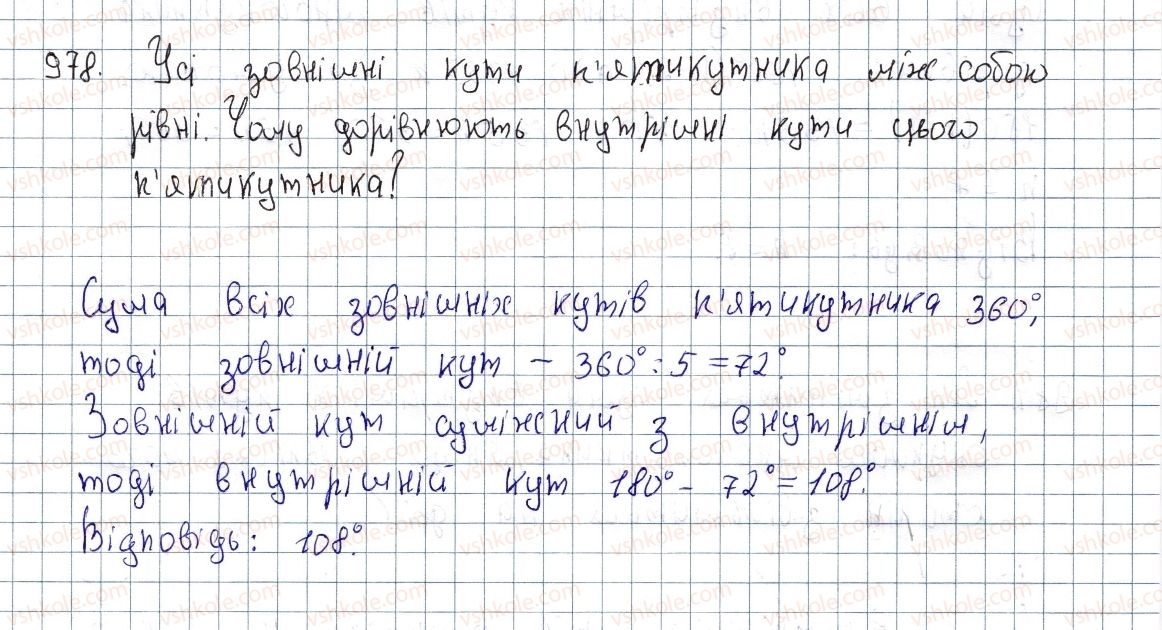 978. Усі зовнішні кути п'ятикутника між собою
рівні. Чому дорівнюють внутрішні кути цього
п'ятикутника?
Сума всіх зовнішніх кутів п'ятикутника 360°,
тоді зовнішній кут – 360° : 5 = 72°.
Зовнішній кут суміжний з внутрішнім,
тоді внутрішній кут 180° – 72° = 108°.
Відповідь: 108°.